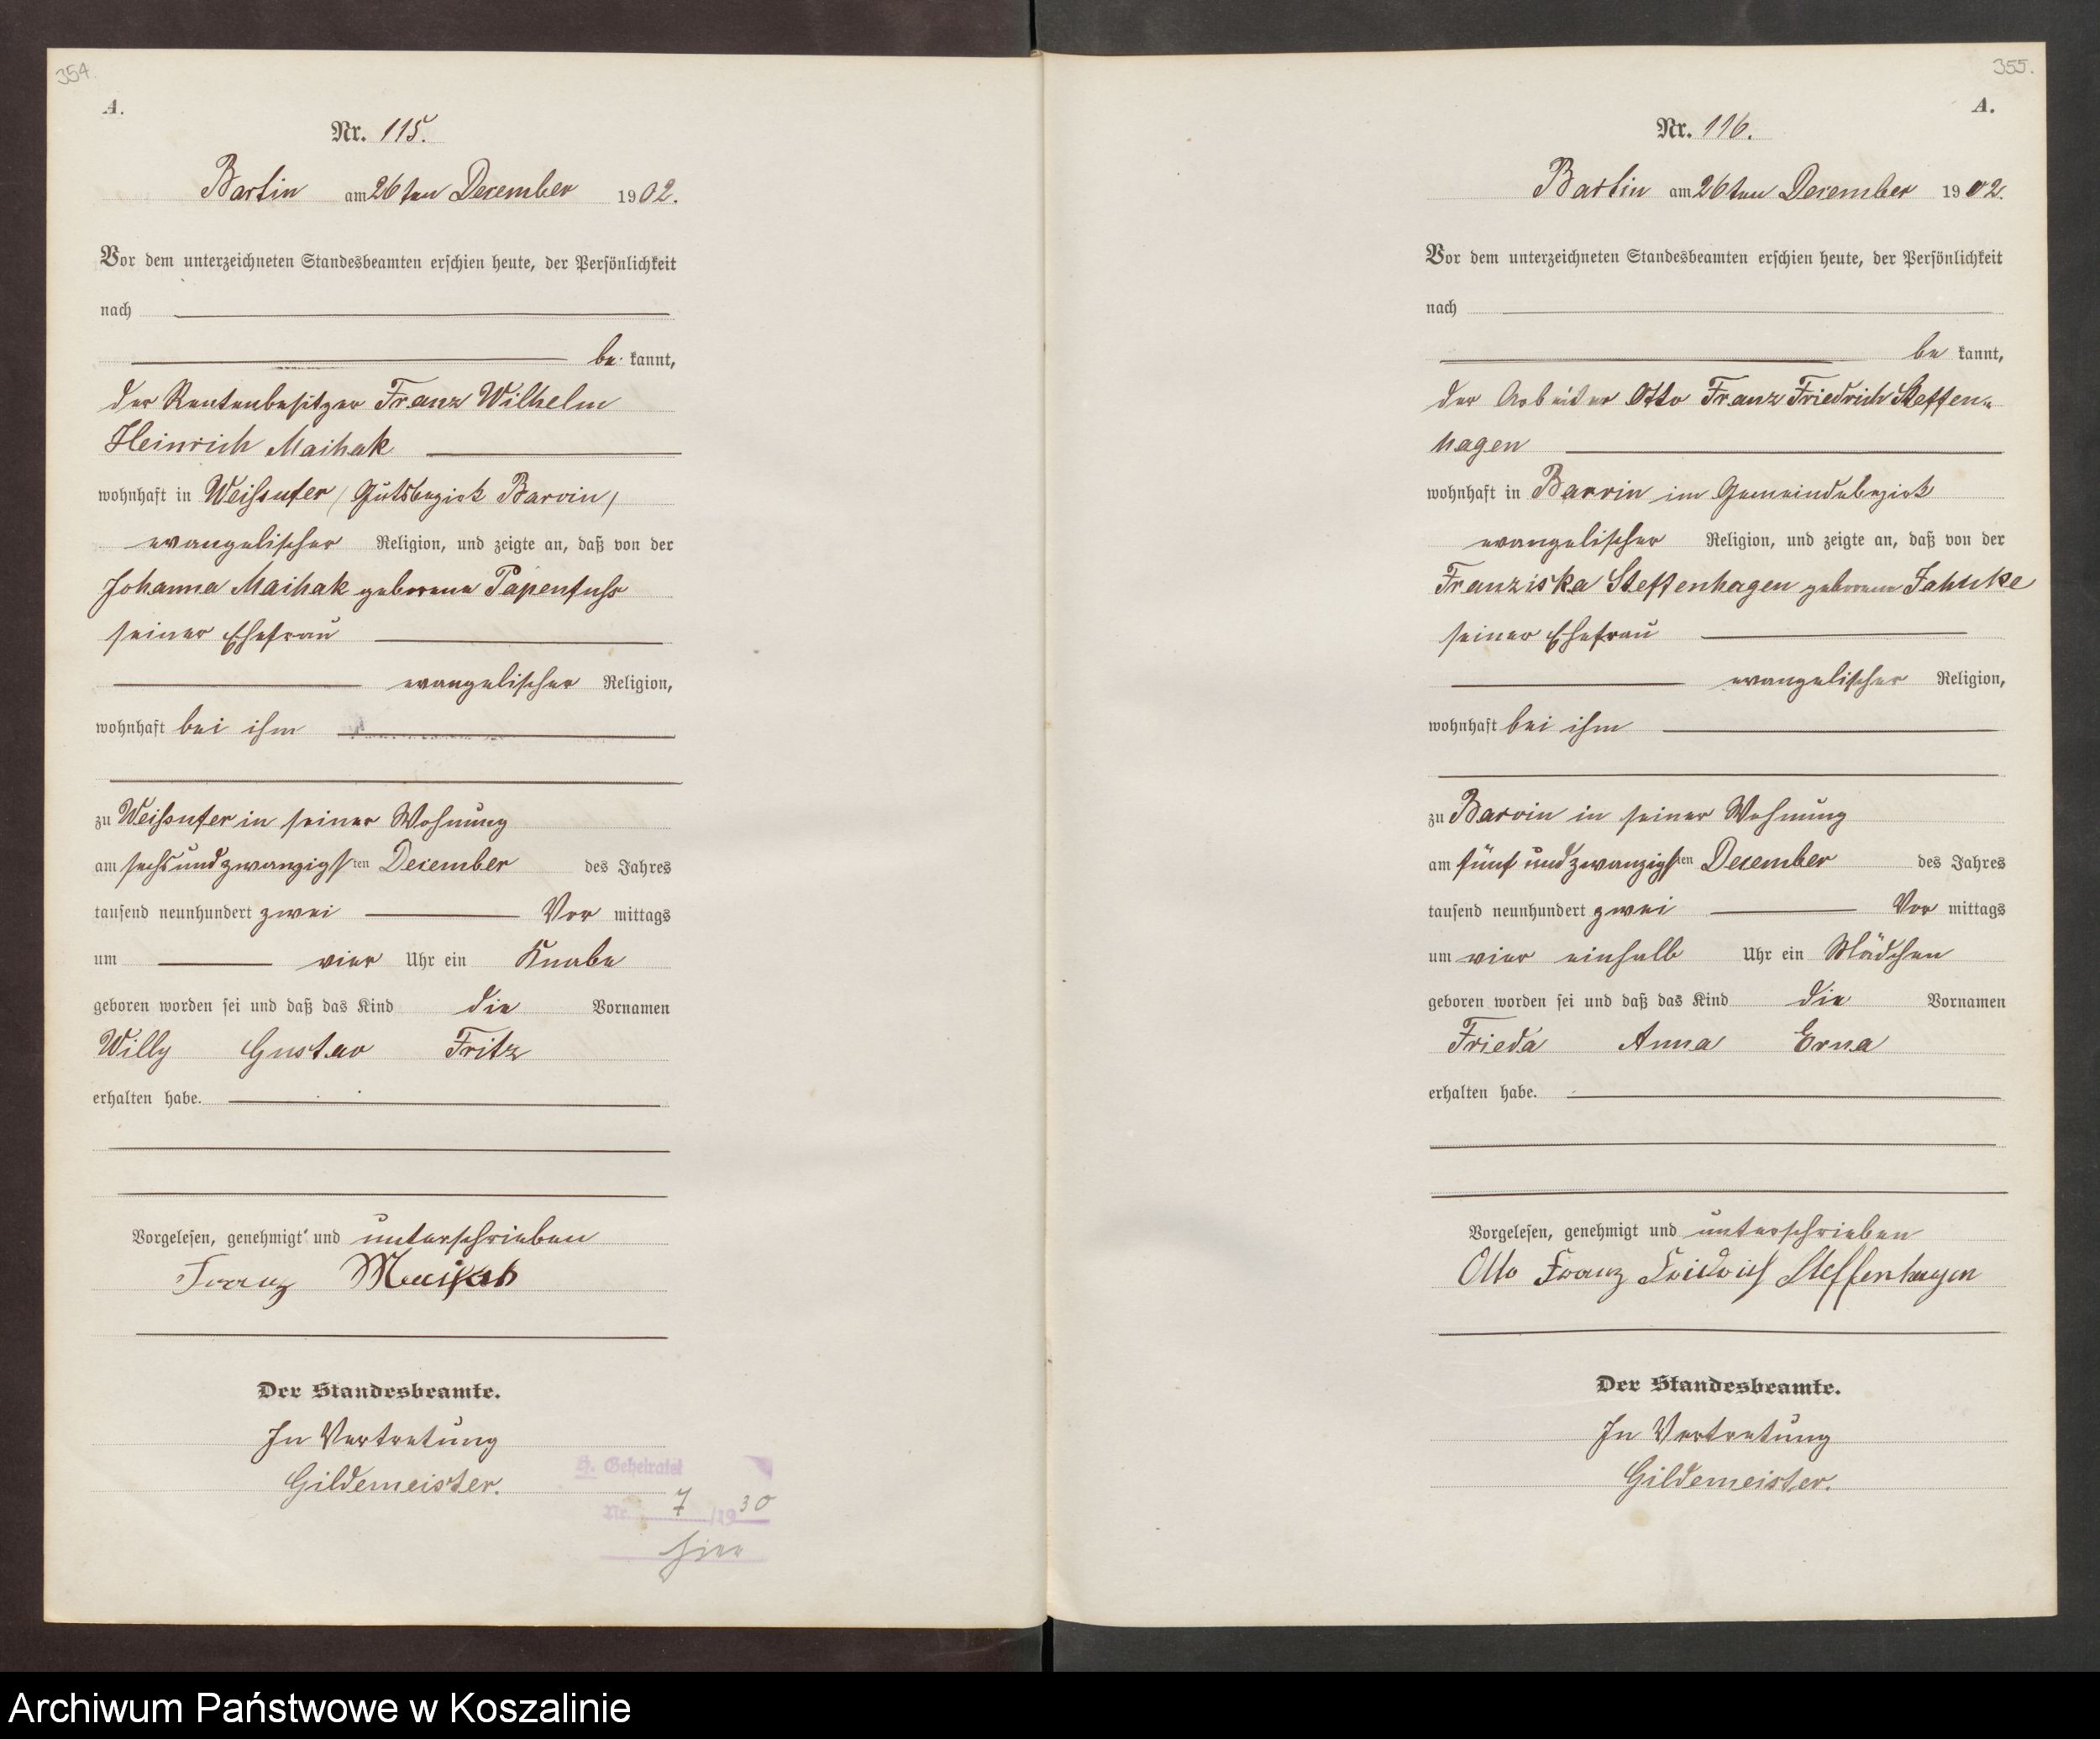 354.
A.
Nr. 115.
Bartin am 26ten Dezember 1902.
Vor dem unterzeichneten Standesbeamten erschien heute, der Persönlichkeit
nach
be kannt,
der Rentenbesitzer Franz Wilhelm
Heinrich Maihak
wohnhaft in Weissufer /Gutsbezirk Barvin/
evangelischer Religion, und zeigte an, daß von der
Johanna Maihak geborene Papenfuss
seiner Ehefrau
evangelischer Religion,
wohnhaft bei ihm
zu Weissufer in seiner Wohnung
am sechsundzwanzigsten Dezember des Jahres
tausend neunhundert zwei Vor mittags
um vier Uhr ein Knabe
geboren worden sei und daß das Kind die Vornamen
Willy Gustav Fritz
erhalten habe.
Vorgelesen, genehmigt und unterschrieben
Franz Maihak
Der Standesbeamte.
In Vertretung
Gildemeister.
Nr. 7 /1930
hier
355.
A.
Nr. 116.
Bartin am 26ten Dezember 1902.
Vor dem unterzeichneten Standesbeamten erschien heute, der Persönlichkeit
nach
be kannt,
der Arbeiter Otto Franz Friedrich Steffen-
hagen
wohnhaft in Barvin im Gemeindebezirk
evangelischer Religion, und zeigte an, daß von der
Franziska Steffenhagen geborene Jahnke
seiner Ehefrau
evangelischer Religion,
wohnhaft bei ihm
zu Barvin in seiner Wohnung
am fünf und zwanzigsten Dezember des Jahres
tausend neunhundert zwei Vor mittags
um vier einhalb Uhr ein Mädchen
geboren worden sei und daß das Kind die Vornamen
Frieda Anna Erna
erhalten habe.
Vorgelesen, genehmigt und unterschrieben
Otto Franz Friedrich Steffenhagen
Der Standesbeamte.
In Vertretung
Gildemeister.
Archiwum Państwowe w Koszalinie